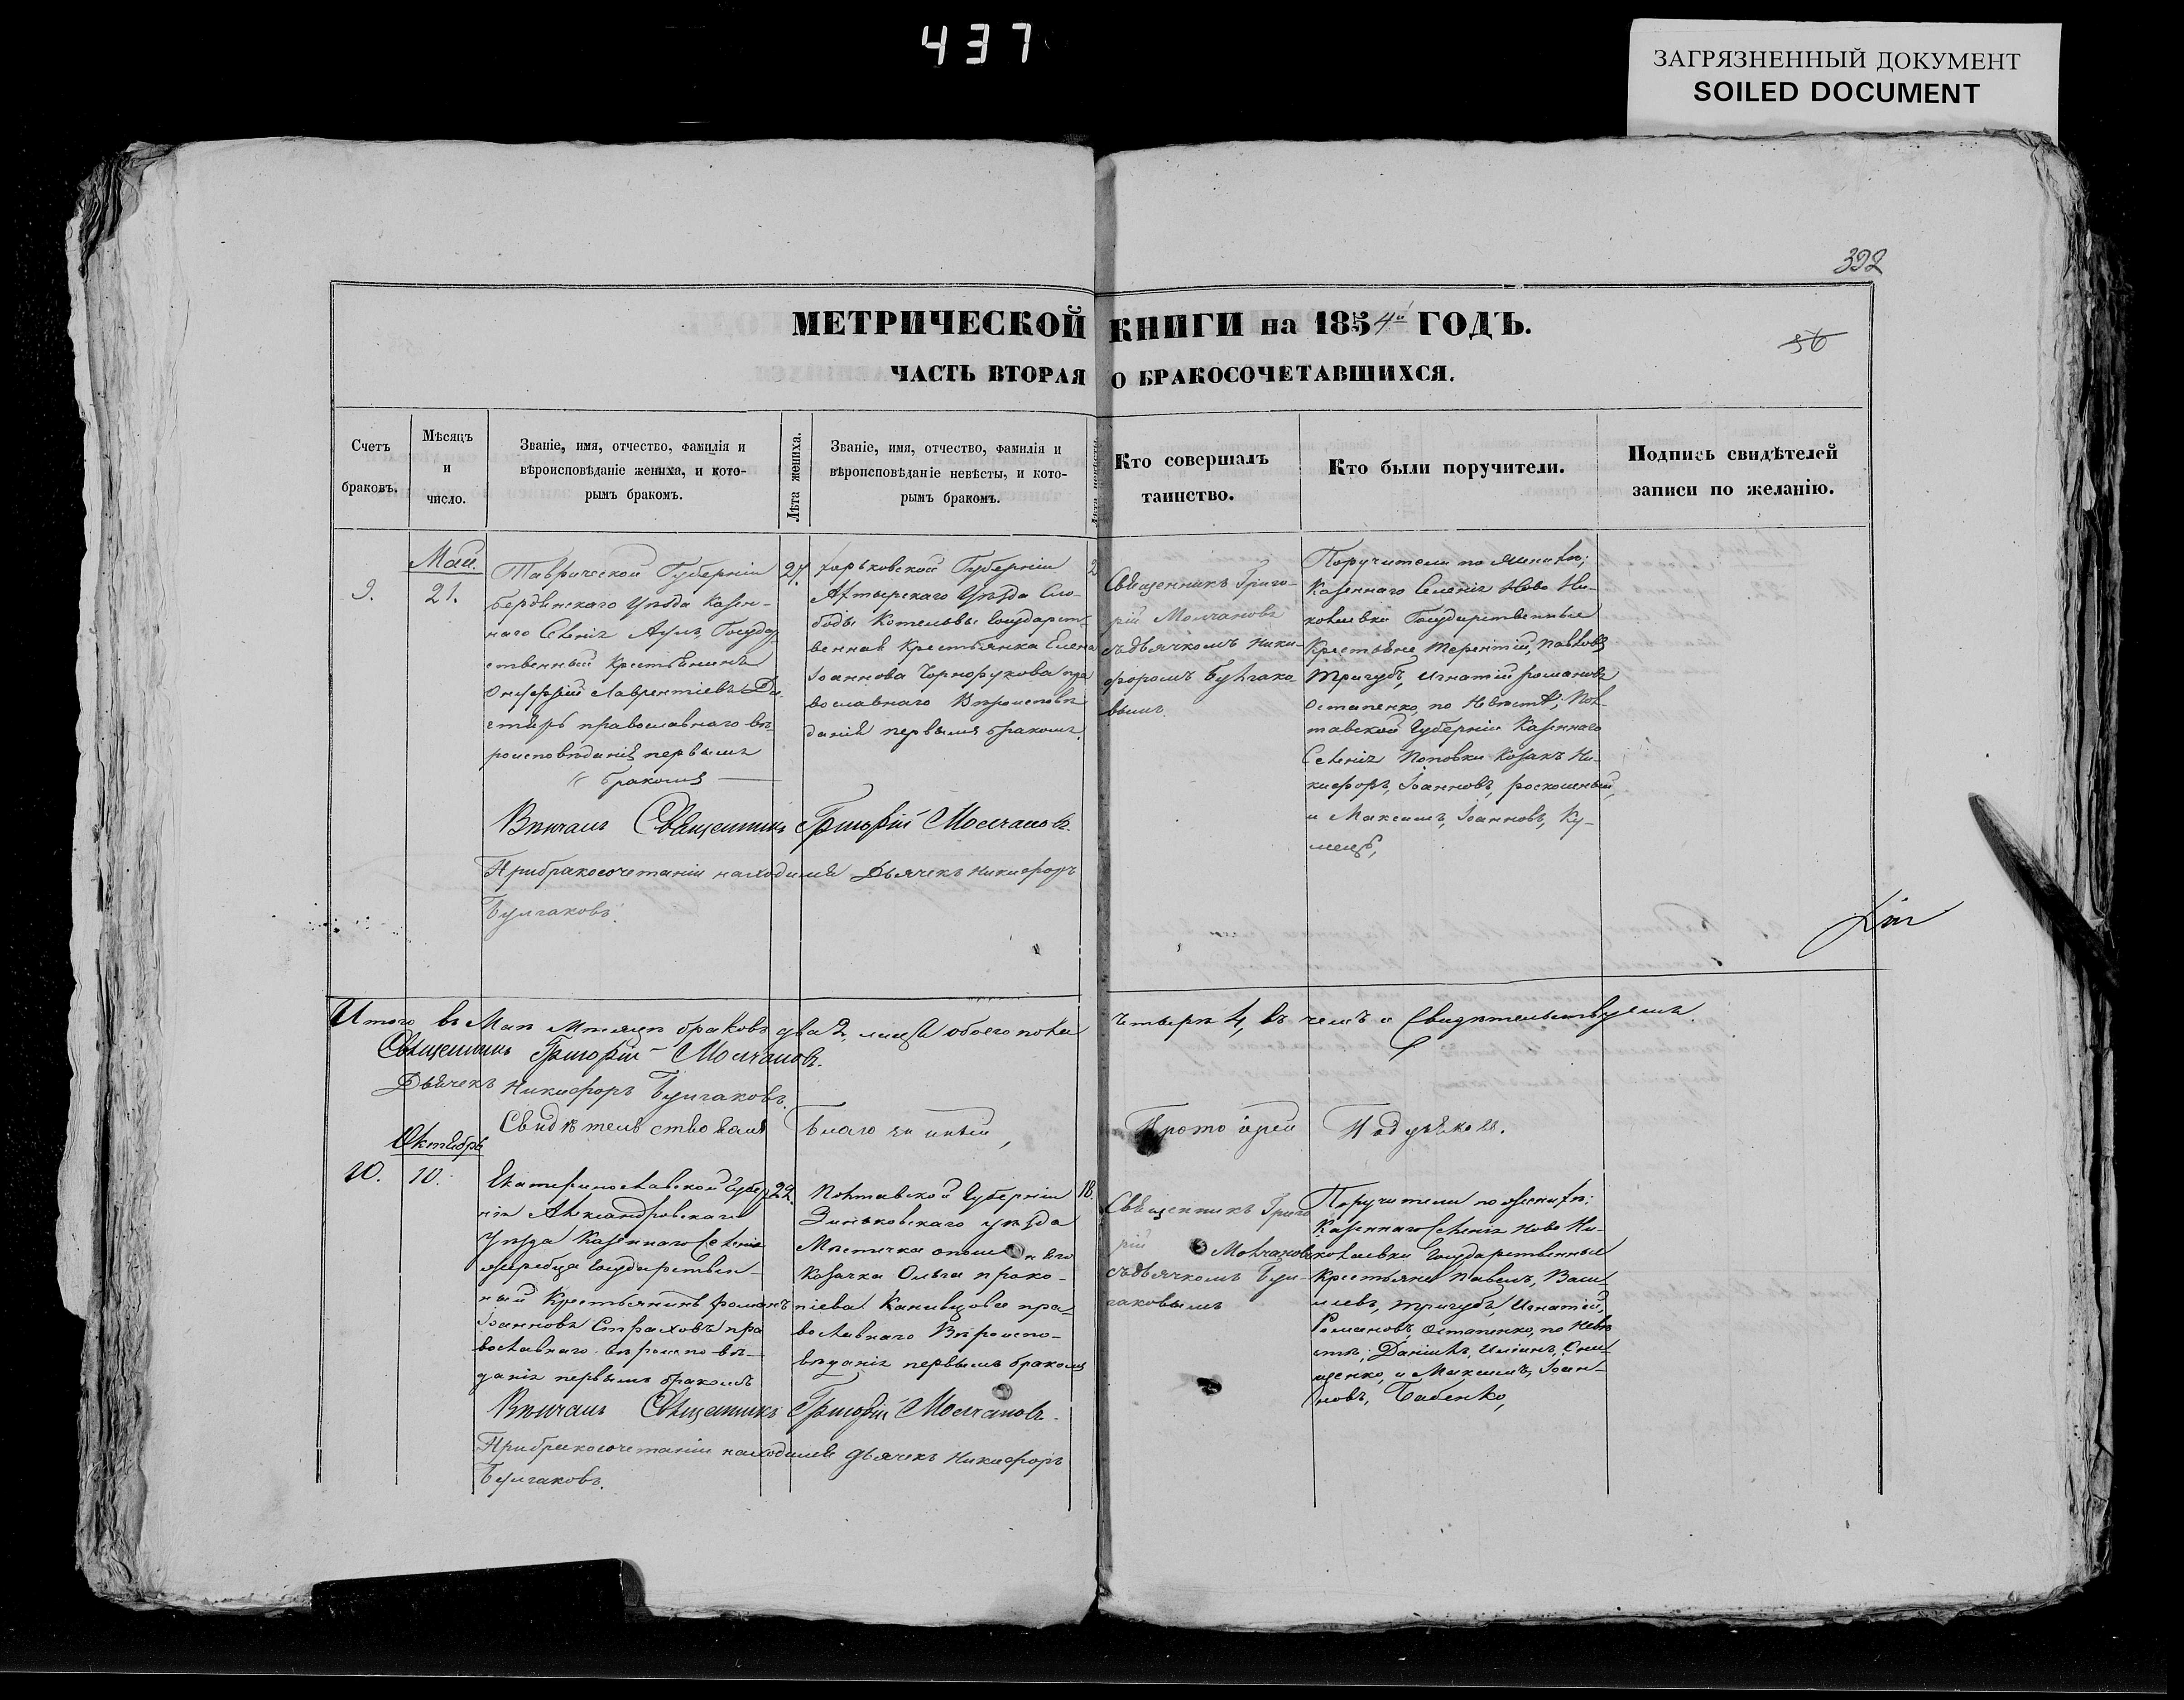 437
ЗАГРЯЗНЕННЫЙ ДОКУМЕНТ
SOILED DOCUMENT
392
МЕТРИЧЕСКОЙ КНИГИ на 1854й ГОДЪ.
56
ЧАСТЬ ВТОРАЯ О БРАКОСОЧЕТАВШИХСЯ.
Счетъ
браковъ.
Мѣсяцъ
и
число.
Званіе, имя, отчество, фамилія и
вѣроисповѣданіе жениха, и кото-
рымъ бракомъ.
Лѣта жениха.
Званіе, имя, отчество, фамилія и
вѣроисповѣданіе невѣсты, и кото-
рымъ бракомъ.
Лѣта невѣсты
Кто совершалъ
таинство.
Кто были поручители.
Подпись свидѣтелей
записи по желанію.
9.
Май.
21.
Таврической Губерніи
Бердянскаго Уѣзда Казен-
наго Селенія Аулъ Государ
ственный Крестьянинъ
Онуфрій Лаврентіевъ
православнаго вѣ-
роисповѣданія первымъ
бракомъ
Харьковской Губерніи
Ахтырскаго Уѣзда Сло-
боды Котельвы Государст-
венная Крестьянка Елена
Іоаннова Чорнорукова пра
вославнаго Вѣроисповѣ
данія первымъ бракомъ.
2
Священникъ Григо-
рій Молчановъ
съ дьячкомъ Ники-
форомъ Булгако-
вымъ
Поручители по Женихѣ;
Казеннаго Селенія Ново Ни-
колаевки Государственные
Крестьяне Терентій, Павловъ
Тригубъ, Игнатій Романовъ
Остапенко, по Невѣстѣ; Пол-
тавской Губерніи Казеннаго
Селенія Поповки Козакъ Ни-
кифоръ, Іоанновъ, роскошный,
и Максимъ, Іоанновъ, Ку-
Вѣнчалъ Священникъ Григорій Молчановъ.
При бракосочетаніи находился Дьячекъ Никифоръ
Булгаковъ.
Итого въ Маѣ Мѣсяцѣ браковъ два 2, лицъ обоего пола четыре 4, въ чемъ и Свидѣтельствуемъ.
Священникъ Григорій Молчановъ.
Дьячекъ Никифоръ Булгаковъ.
Свидѣтельствовалъ Благочинный, Протоіерей
Октябрь
10.
10.
Екатеринославской Губер
ніи Александровскаго
Уѣзда Казеннаго Селенія
Жеребца Государствен-
ный Крестьянинъ Романъ
Іоанновъ Страховъ пра
вославнаго вѣроисповѣ-
данія первымъ бракомъ
22.
Полтавской Губерніи
Зиньковскаго уѣзда
Мѣстечка
Козачка Ольга Проко-
піева Канивцова пра-
вославнаго Вѣроиспо-
вѣданія первымъ бракомъ
18.
Священникъ Григо
рій Молчановъ
съ дьячкомъ Бул-
гаковымъ
Поручители по Женихѣ;
Казеннаго Селенія Ново Ни-
колаевки Государственные
Крестьяне Павелъ, Васи-
левъ, Тригубъ, Игнатій,
Романовъ, Остапенко, по Невѣ
стѣ; Даніилъ,
и Максимъ, Іоан-
новъ, Бабенко,
Вѣнчалъ Священникъ Григорій Молчановъ.
При бракосочетаніи находился дьячекъ Никифоръ
Булгаковъ.